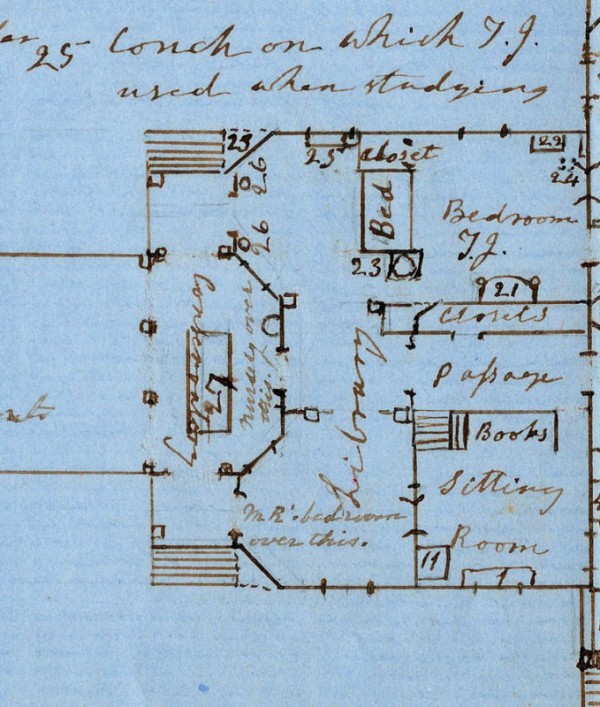 25 Couch on which T.J.
used when studying
25
25
Closet
22
24
26
26
Bed
Bedroom
T.J.
23
21
Closets
Conservatory
Nursery over
this
Library
Passage
Books
Sitting
Room
Mr R's bedroom
over this.
11
1